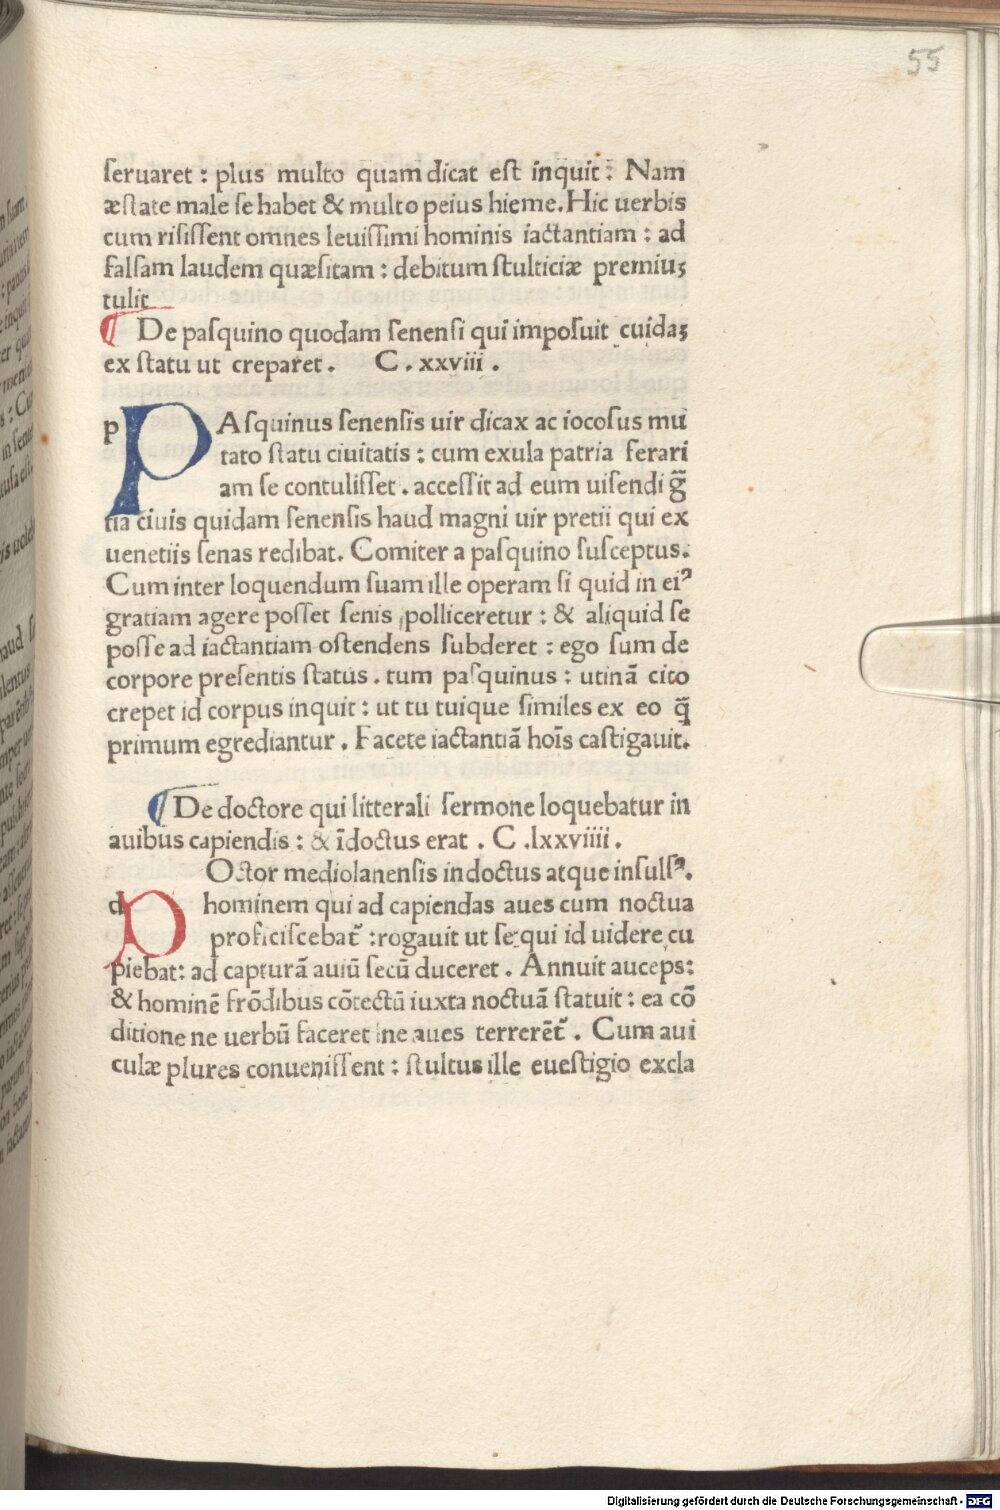 55
ſeruaret : plus multo quam dicat eſt inquit : Nam
æſtate male ſe habet & multo peius hieme. Hic uerbis
cum riſiſſent omnes leuiſſimi hominis iactantiam : ad
falſam laudem quæſitam : debitum ſtulticiæ premiuꝫ
tulit
¶ De paſquino quodam ſenenſi qui impoſuit cuidaꝫ
ex ſtatu ut creparet . C . xxviii .
p PAſquinus ſenenſis uir dicax ac iocoſus mu
tato ſtatu ciuitatis : cum exula patria ferari
am ſe contuliſſet . acceſſit ad eum uiſendi g̃
tia ciuis quidam ſenenſis haud magni uir pretii qui ex
uenetiis ſenas redibat. Comiter a paſquino ſuſceptus.
Cum inter loquendum ſuam ille operam ſi quid in eiꝰ
gratiam agere poſſet ſenis polliceretur : & aliquid ſe
poſſe ad iactantiam oſtendens ſubderet : ego ſum de
corpore preſentis ſtatus . tum paſquinus : utinā cito
crepet id corpus inquit : ut tu tuique ſimiles ex eo q̄
primum egrediantur . Facete iactantiā hoīs caſtigauit.
¶ De doctore qui litterali ſermone loquebatur in
auibus capiendis : & īdoctus erat . C .lxxviiii .
d DOctor mediolanenſis indoctus atque inſulſꝰ.
hominem qui ad capiendas aues cum noctua
proficiſcebat᷑ : rogauit ut ſe qui id uidere cu
piebat: ad capturā auiū ſecū duceret . Annuit auceps:
& hominē frōdibus cōtectū iuxta noctuā ſtatuit : ea cō
ditione ne uerbū faceret ne aues terrerēt᷑ . Cum aui
culæ plures conueniſſent : ſtultus ille eueſtigio excla
Digitalisierung gefördert durch die Deutsche Forschungsgemeinschaft - DFG